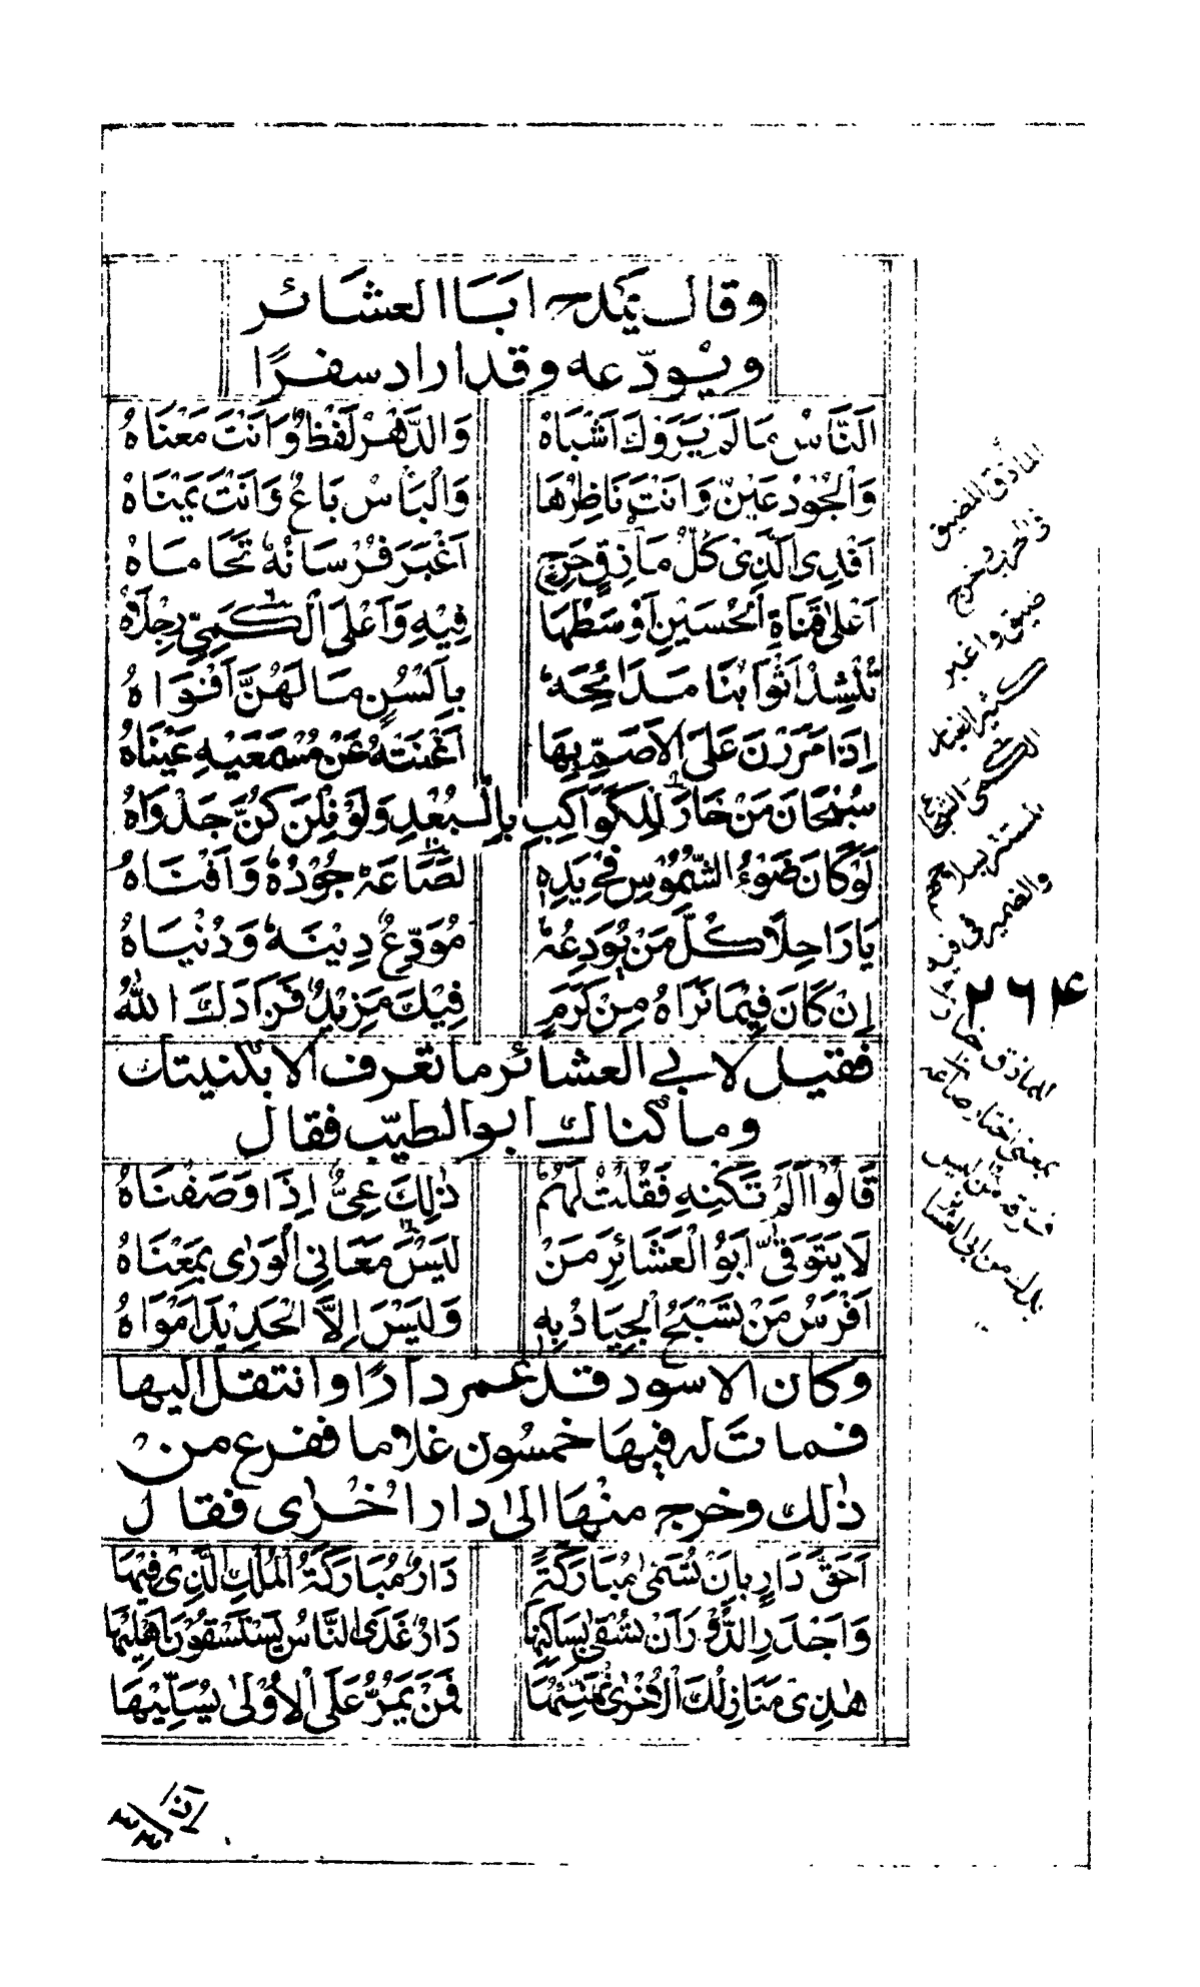 وقال يمدح ابا العشائر
ويودّعه وقد اراد سفرًا
اَلنَّاسُ مَا لَمْ يَرَوْكَ اَشْبَاهُ وَالدَّهْرُ لَفْظٌ وَاَنْتَ مَعْنَاهُ
وَالْجُوْدُ عَيْنٌ وَاَنْتَ نَاظِرُهَا وَالْبَأْسُ بَاعٌ وَاَنْتَ يَمْنَاهُ
اَفْدِى الَّذِىْ كُلُّ مَأْزِقٍ حَرِجٍ اَغْبَرَ فُرْسَانُهٗ تَحَامَاهُ
اَعْلٰى قَنَاةِ الْحُسَيْنِ اَوْسَطُهَا فِيْهِ وَاَعْلَى الْكَمِىِّ رِجْلَاهُ
تُنْشِدُ اَثْوَابُنَا مَدَائِحَهٗ بِاَلْسُنٍ مَا لَهُنَّ اَفْوَاهُ
اِذَا مَرَرْنَ عَلَى الْاَصَمِّ بِهَا اَغْنَتْهُ عَنْ مِسْمَعَيْهِ عَيْنَاهُ
سُبْحَانَ مَنْ خَارَ لِلْكَوَاكِبِ بِالْبُعْدِ وَلَوْ نِلْنَ كُنَّ جَدْوَاهُ
لَوْ كَانَ ضَوْءُ الشُّمُوْسِ فِيْ يَدِهٖ لَصَاعَهٗ جُوْدُهٗ وَاَفْنَاهُ
يَا رَاحِلًا كُلُّ مَنْ يُوَدِّعُهٗ مُوَدِّعٌ دِيْنَهٗ وَدُنْيَاهُ
اِنْ كَانَ فِيْمَا نَرَاهُ مِنْ كَرَمٍ فِيْكَ مَزِيْدٌ فَزَادَكَ اللهُ
فقيل لابي العشائر ما تعرف الا بكنيتك
وما كناك ابو الطيّب فقال
قَالُوْا اَلَمْ تَكْنِهِ فَقُلْتُ لَهُمْ ذٰلِكَ عِىٌّ اِذَا وَصَفْنَاهُ
لَا يَتَوَقّٰى اَبُو الْعَشَائِرِ مَنْ لَيْسَ مَعَانِى الْوَرٰى بِمَعْنَاهُ
اَفْرَسُ مَنْ تَسْبَحُ الْجِيَادُ بِهٖ وَلَيْسَ اِلَّا الْحَدِيْدَ اَمْوَاهُ
وكان الاسود قد عمر دارًا وانتقل اليها
فماتَ له فيها خمسُون غلاما ففزع من
ذٰلك وخرج منها الى دار اخرى فقال
اَحَقُّ دَارٍ بِاَنْ تُسَمّٰى مُبَارَكَةً دَارٌ مُبَارَكَةُ الْمَلْكِ الَّذِىْ فِيْهَا
وَاَجْدَرُ الدُّوْرِ اَنْ تُسْقٰى بِسَاكِنِهَا دَارٌ غَدَى النَّاسُ يَسْتَسْقُوْنَ اَهْلِيْهَا
هٰذِىْ مَنَازِلُكَ الْاُخْرٰى نُهَنِّيْهَا فَمَنْ يَمُرُّ عَلَى الْاُوْلٰى يُسَلِّيْهَا
المأذق المضيق
ضيق واغبر
كثير الغبار
الكمى الشجاع
والضمير فى فيه
۲۶۴
للماذق خار
بمعنى اختار صاعه
فرقه
بدل من ابى العشائر